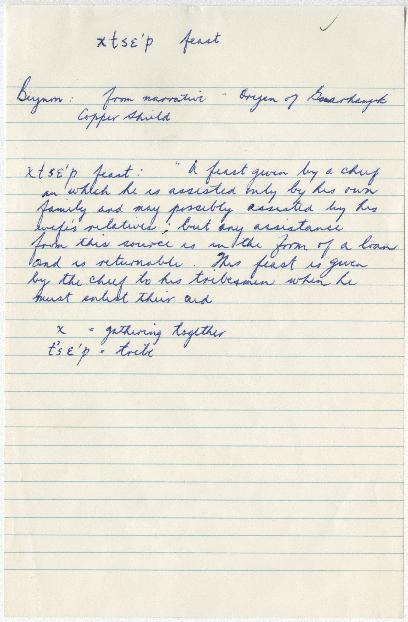 xtsɛ'p feast
Beynon: from narrative - Origin of
Copper Shield
xtsɛ'p feast: " A feast given by a chief
in which he is assisted only by his own
family and may possibly assisted by his
wife's relatives; but any assistance
from this source is in the form of a loan
and is returnable. This feast is given
by the chief to his tribesmen when he
must enlist their aid
x = gathering together
t's ɛ'p = tribe